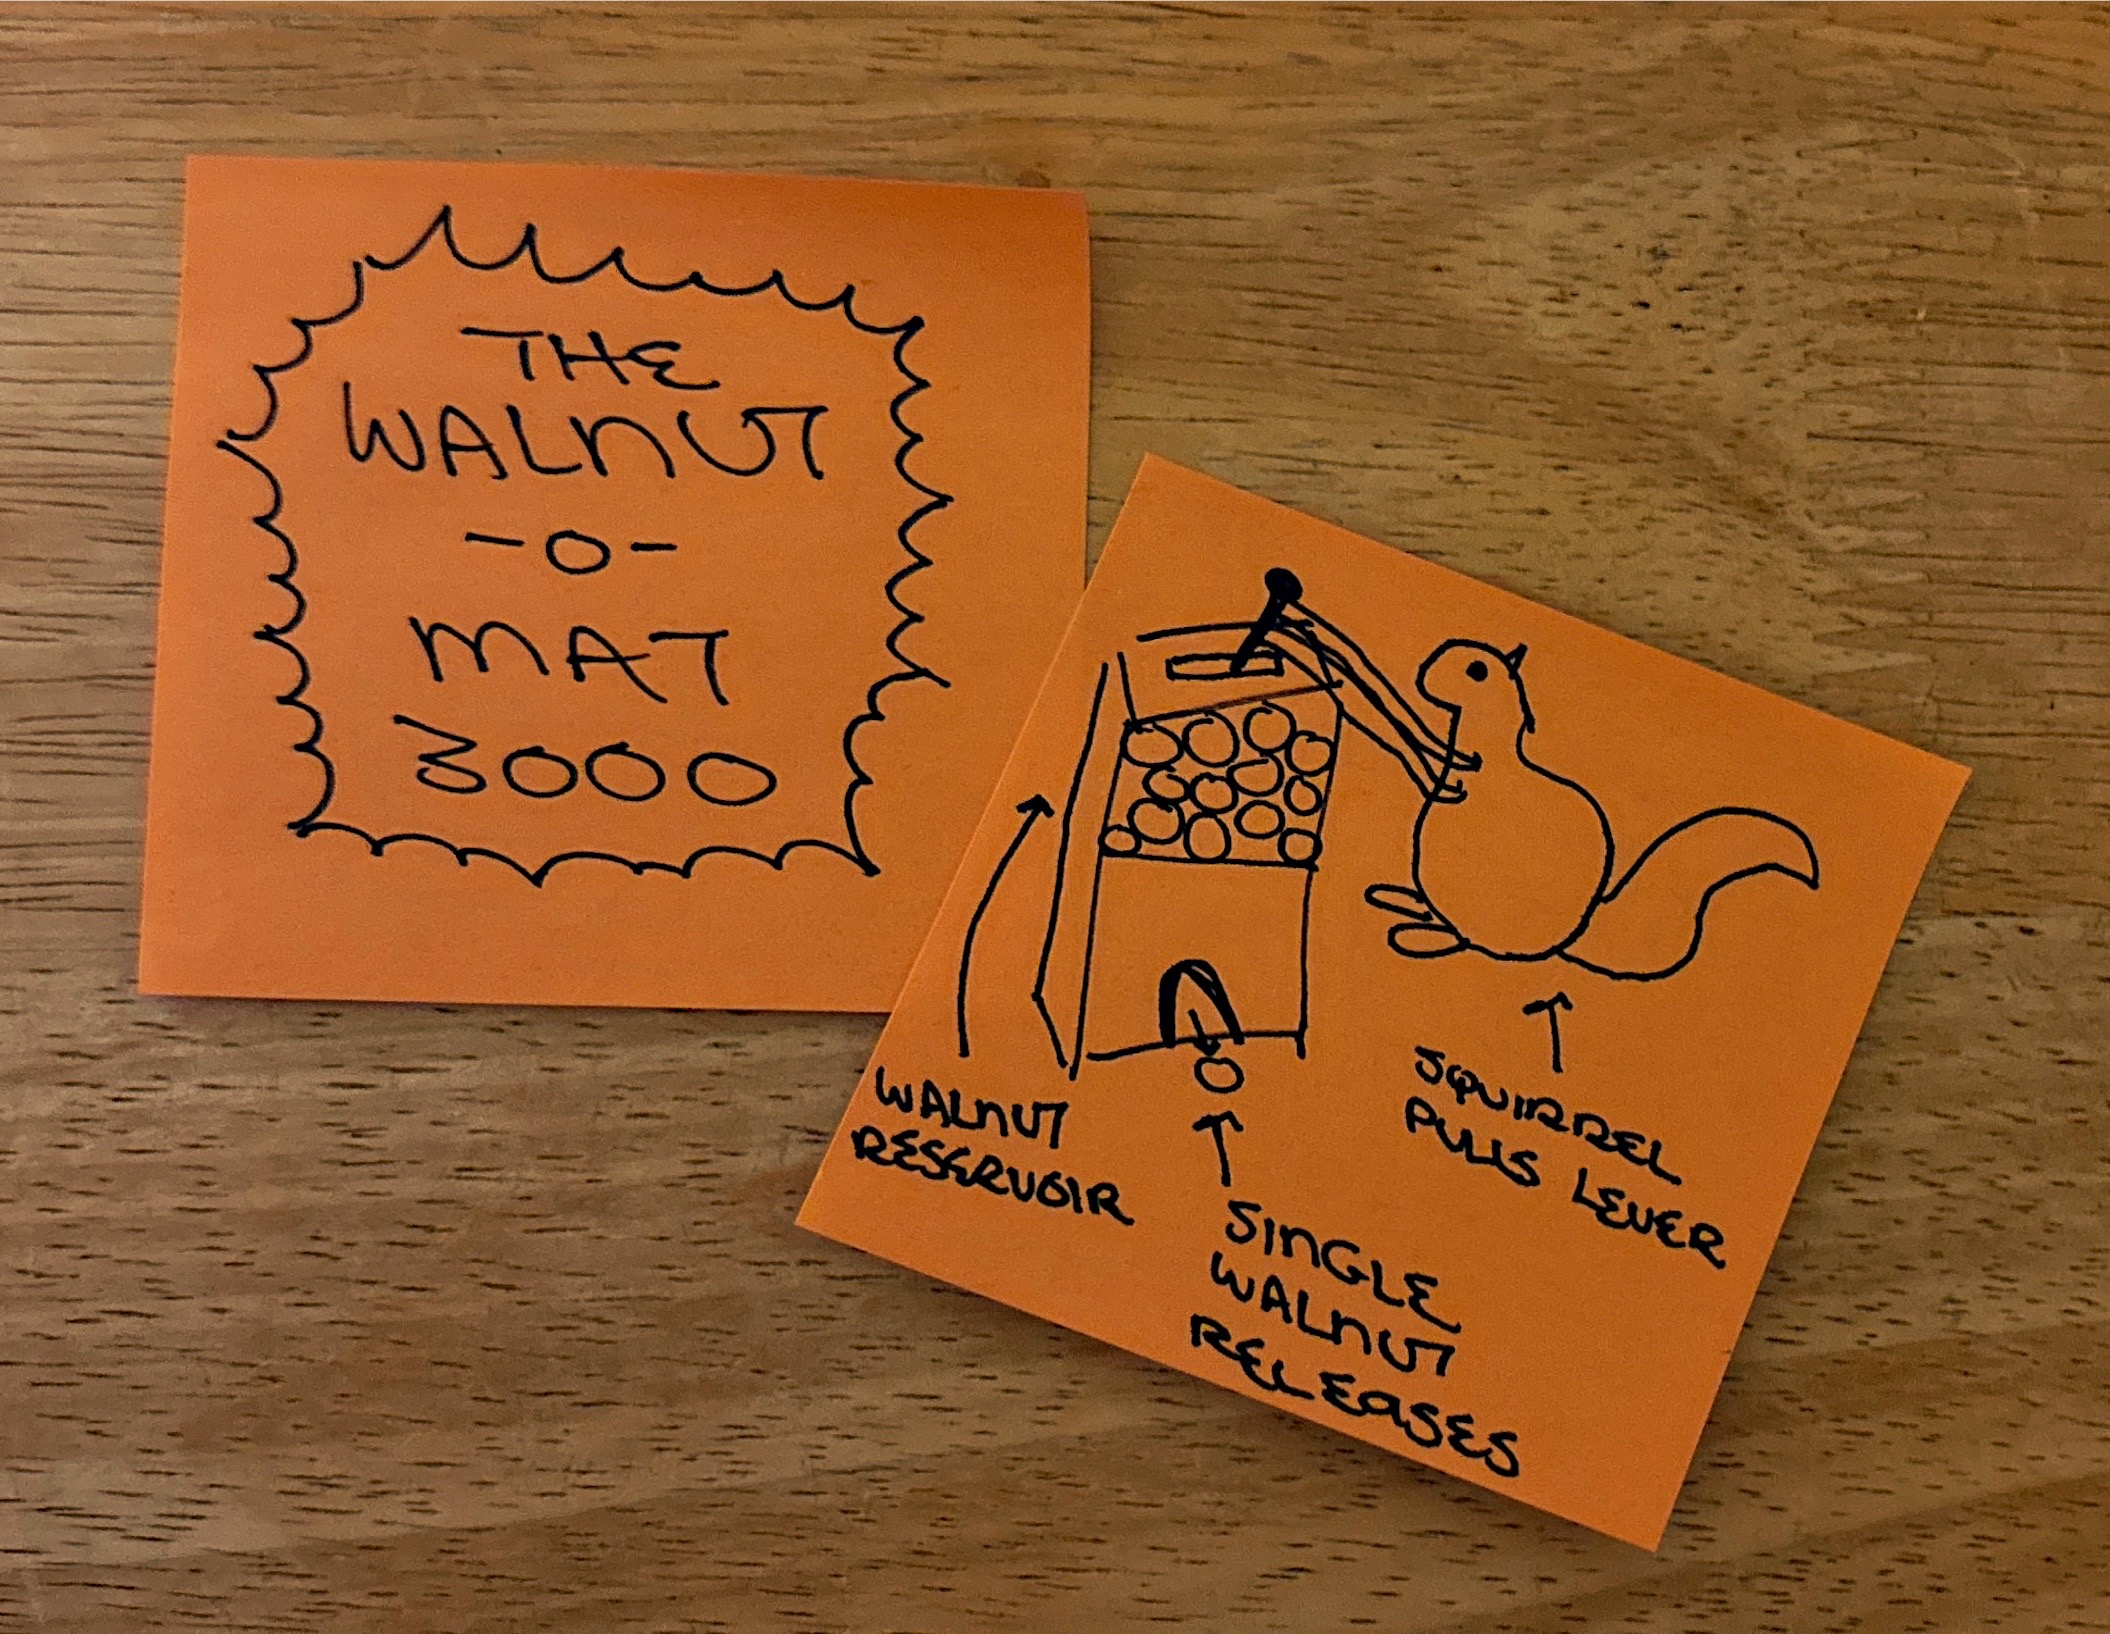 THE
WALNUT
-O-
MAT
3000
WALNUT
RESERVOIR
SINGLE
WALNUT
RELEASES
SQUIRREL
PULLS LEVER